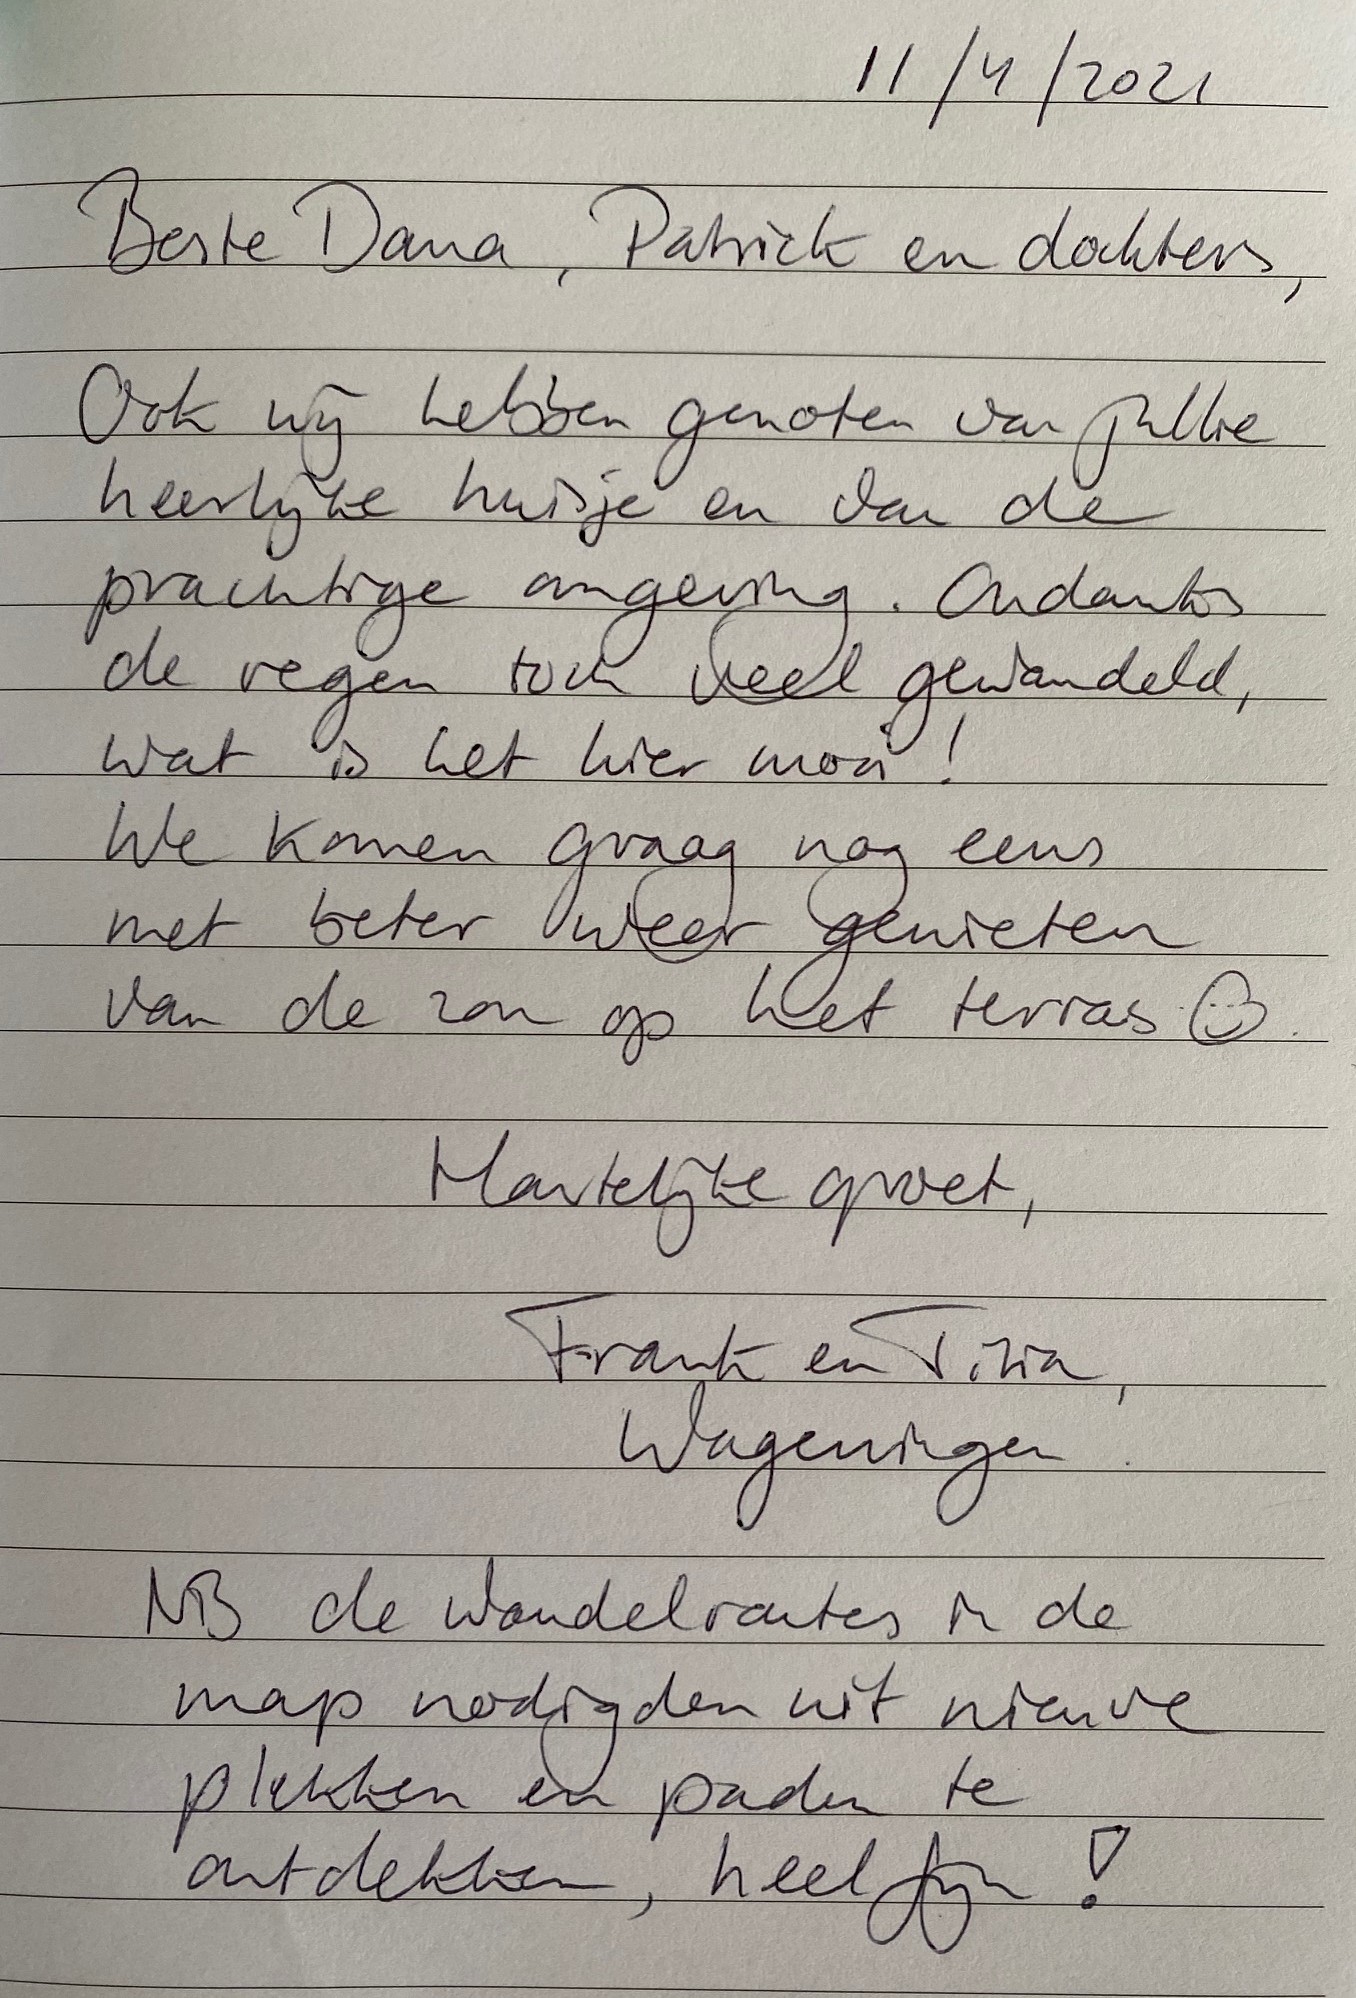 11/4/2021
Beste Dana, Patrick en dochters,
Ook wij hebben genoten van jullie
heerlijke huisje en van de
prachtige omgeving. Ondanks
de regen toch veel gewandeld,
wat is het hier mooi!
We komen graag nog eens
met beter weer genieten
van de zon op het terras ☺.
Hartelijke groet,
Frank en
Wageningen.
NB de wandelroutes in de
map nodigden uit nieuwe
plekken en paden te
ontdekken, heel fijn!